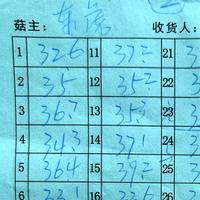 ②
菇主： 收货人：
1 32.6 11 37.5 21
2 35 12 35.2 22
3 36.7 13 35.5 23
4 34.3 14 37.1 24
5 36.4 15 39.2 25
6 33.1 16 33.6 26